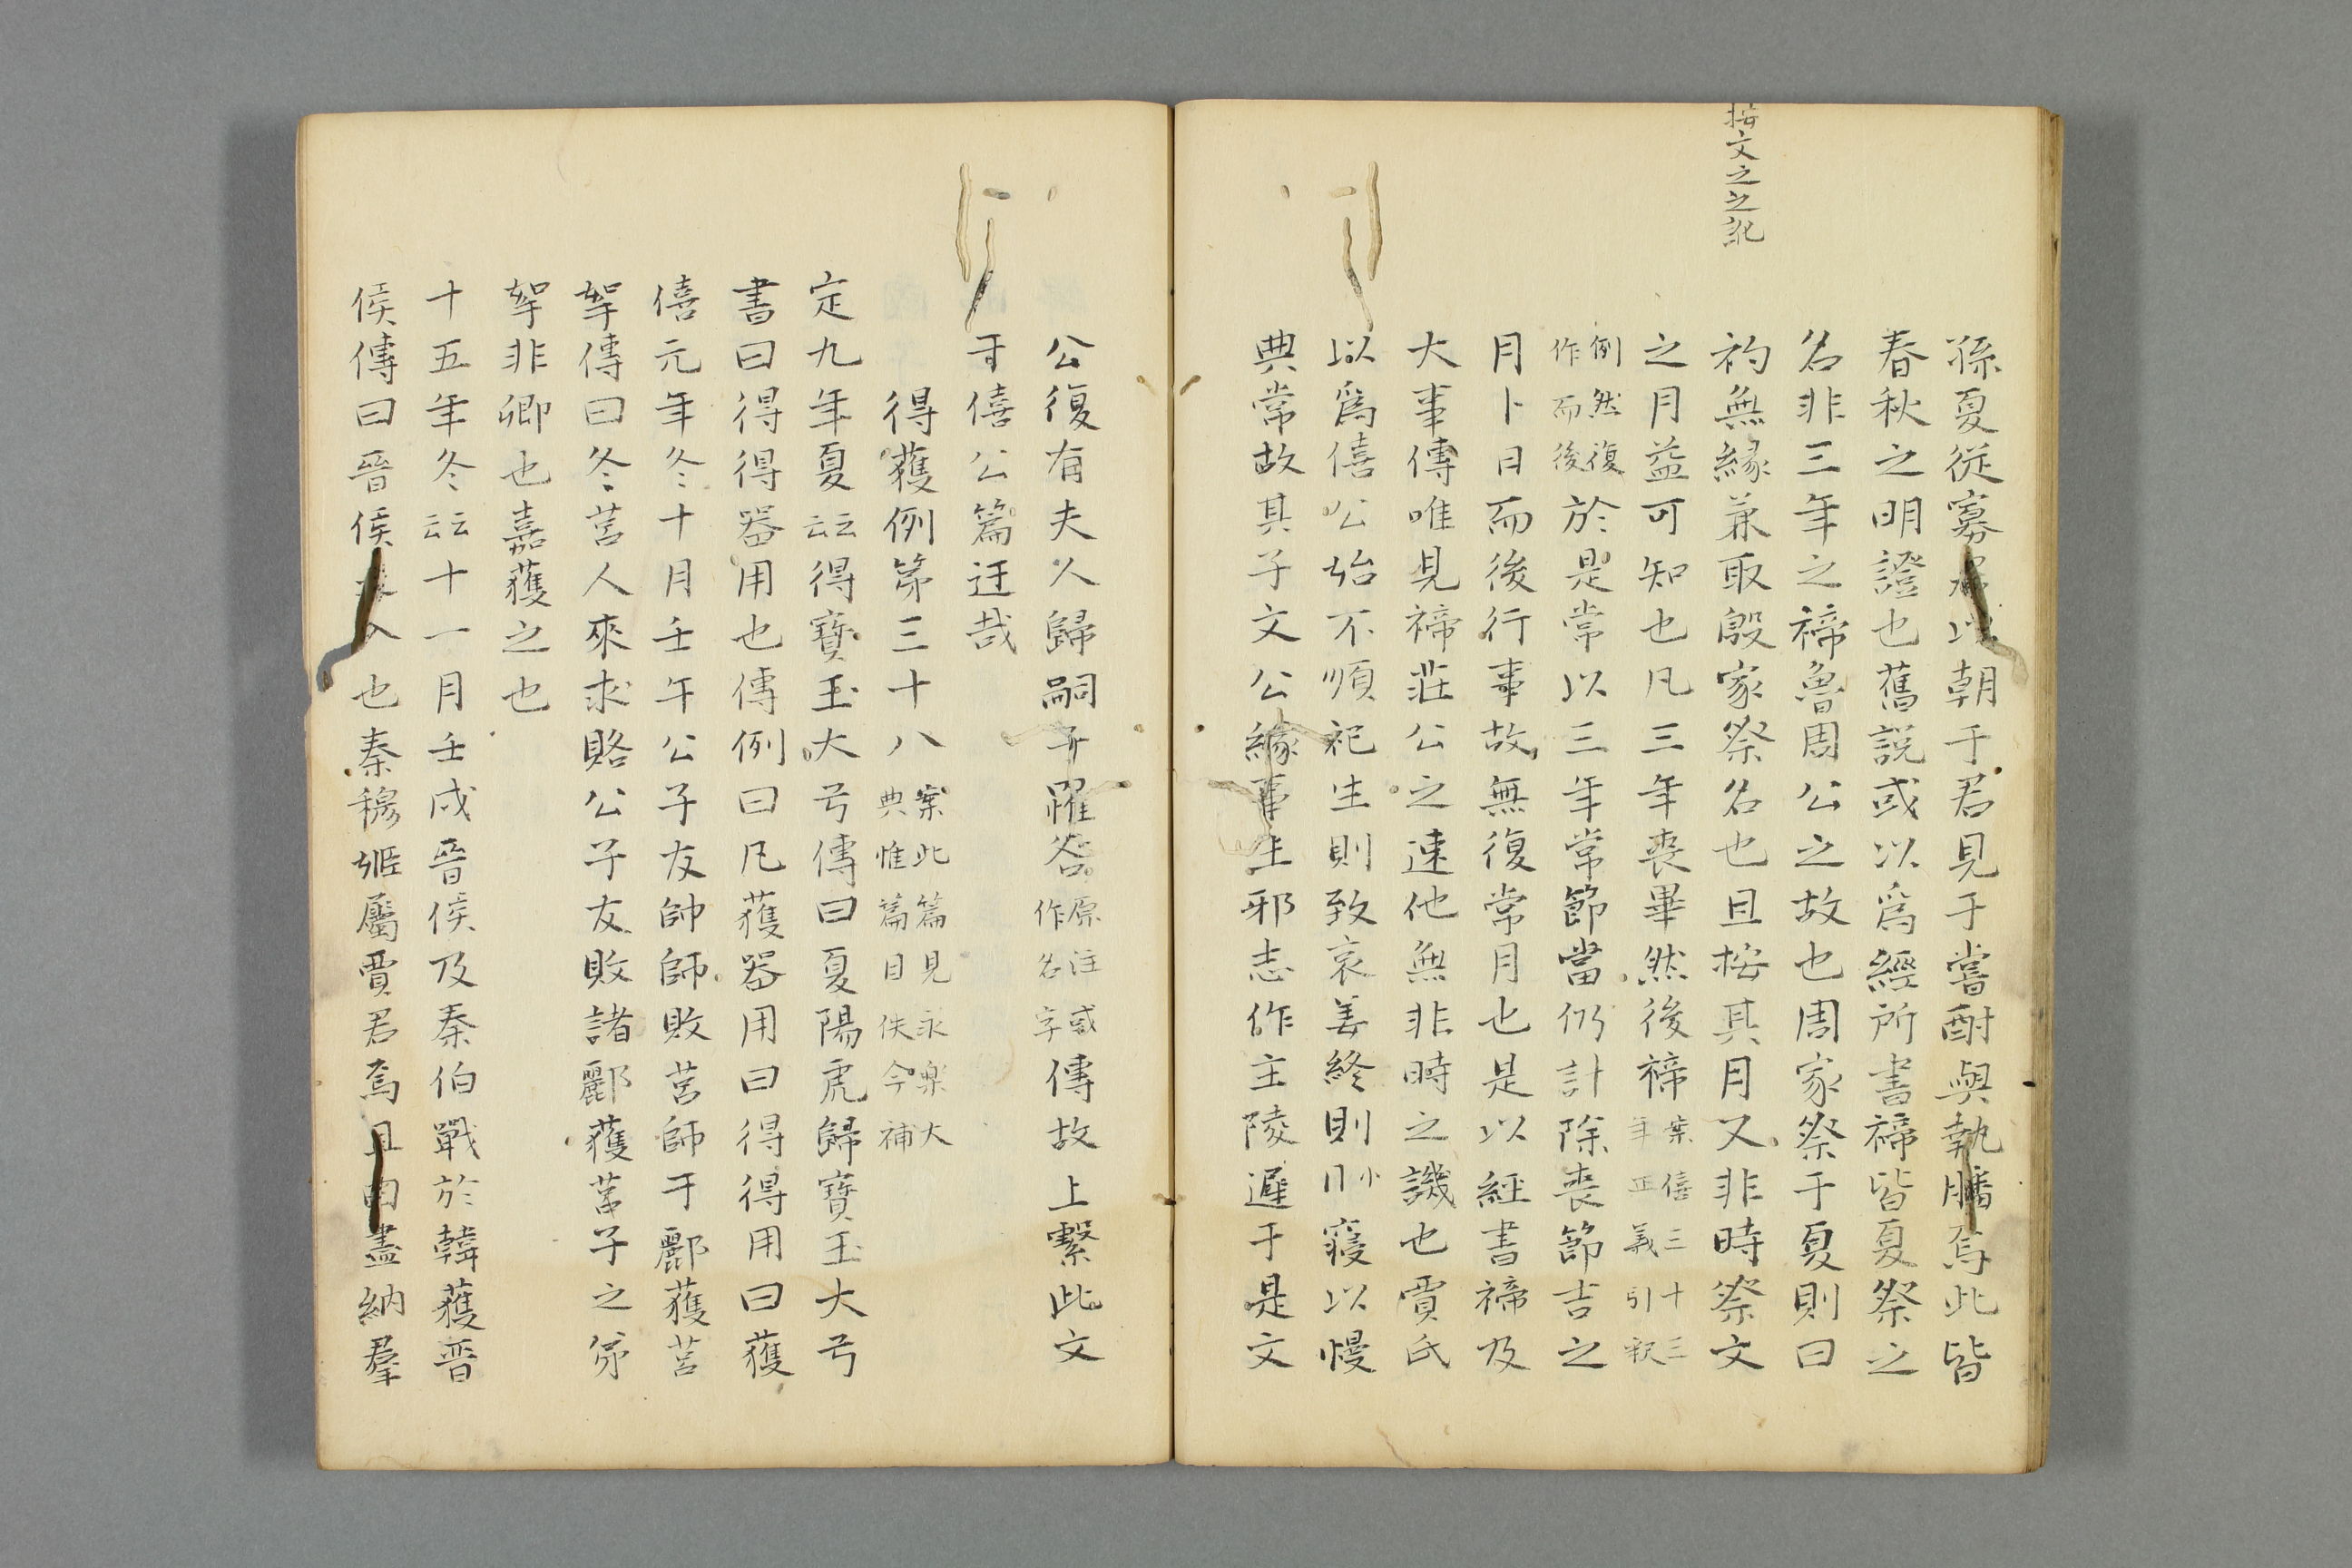 按文之之訛
孫夏從寡君以朝于君見于嘗酎與執膰焉此皆
春秋之明證也舊説或以爲經所書禘皆夏祭之
名非三年之禘魯周公之故也周家祭于夏則曰
礿無縁兼取殷家祭名也且按其月又非時祭文
之月益可知也凡三年喪畢然後禘案僖三十三年正義引釈
例然復作而後於是常以三年常節當仍計除喪節吉之
月卜日而後行事故無復常月也是以經書禘及
大事傳唯見禘莊公之速他無非時之譏也賈氏
以爲僖公始不順祀生則致哀姜終則小寢以慢
典常故其子文公縁事生邪志作主陵遲于是文
公復有夫人歸嗣子罹咎原注或作名字傳故上繫此文
于僖公篇迂哉
得獲例第三十八案此篇見永楽大典惟篇目佚今補
定九年夏云云得寶玉大弓傳曰夏陽虎歸寶玉大弓
書曰得得器用也傳例曰凡獲器用曰得得用曰獲
僖元年冬十月壬午公子友帥師敗莒師于酈獲莒
挐傳曰冬莒人來求賂公子友敗諸酈獲莒子之弟
挐非卿也嘉獲之也
十五年冬云云十一月壬戌晉侯及秦伯戰於韓獲晉
侯傳曰晉侯入也秦穆姬屬賈君焉且曰盡納羣